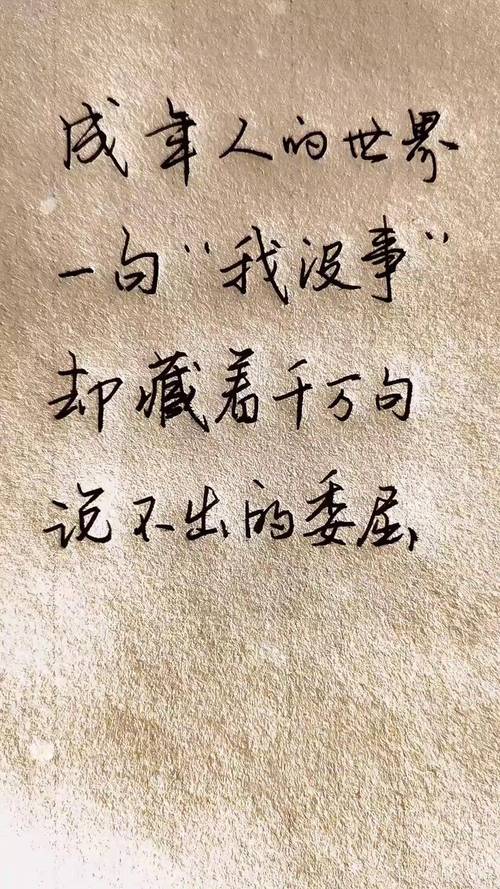 成年人的世界
一句“我没事”
却藏着千万句
说不出的委屈